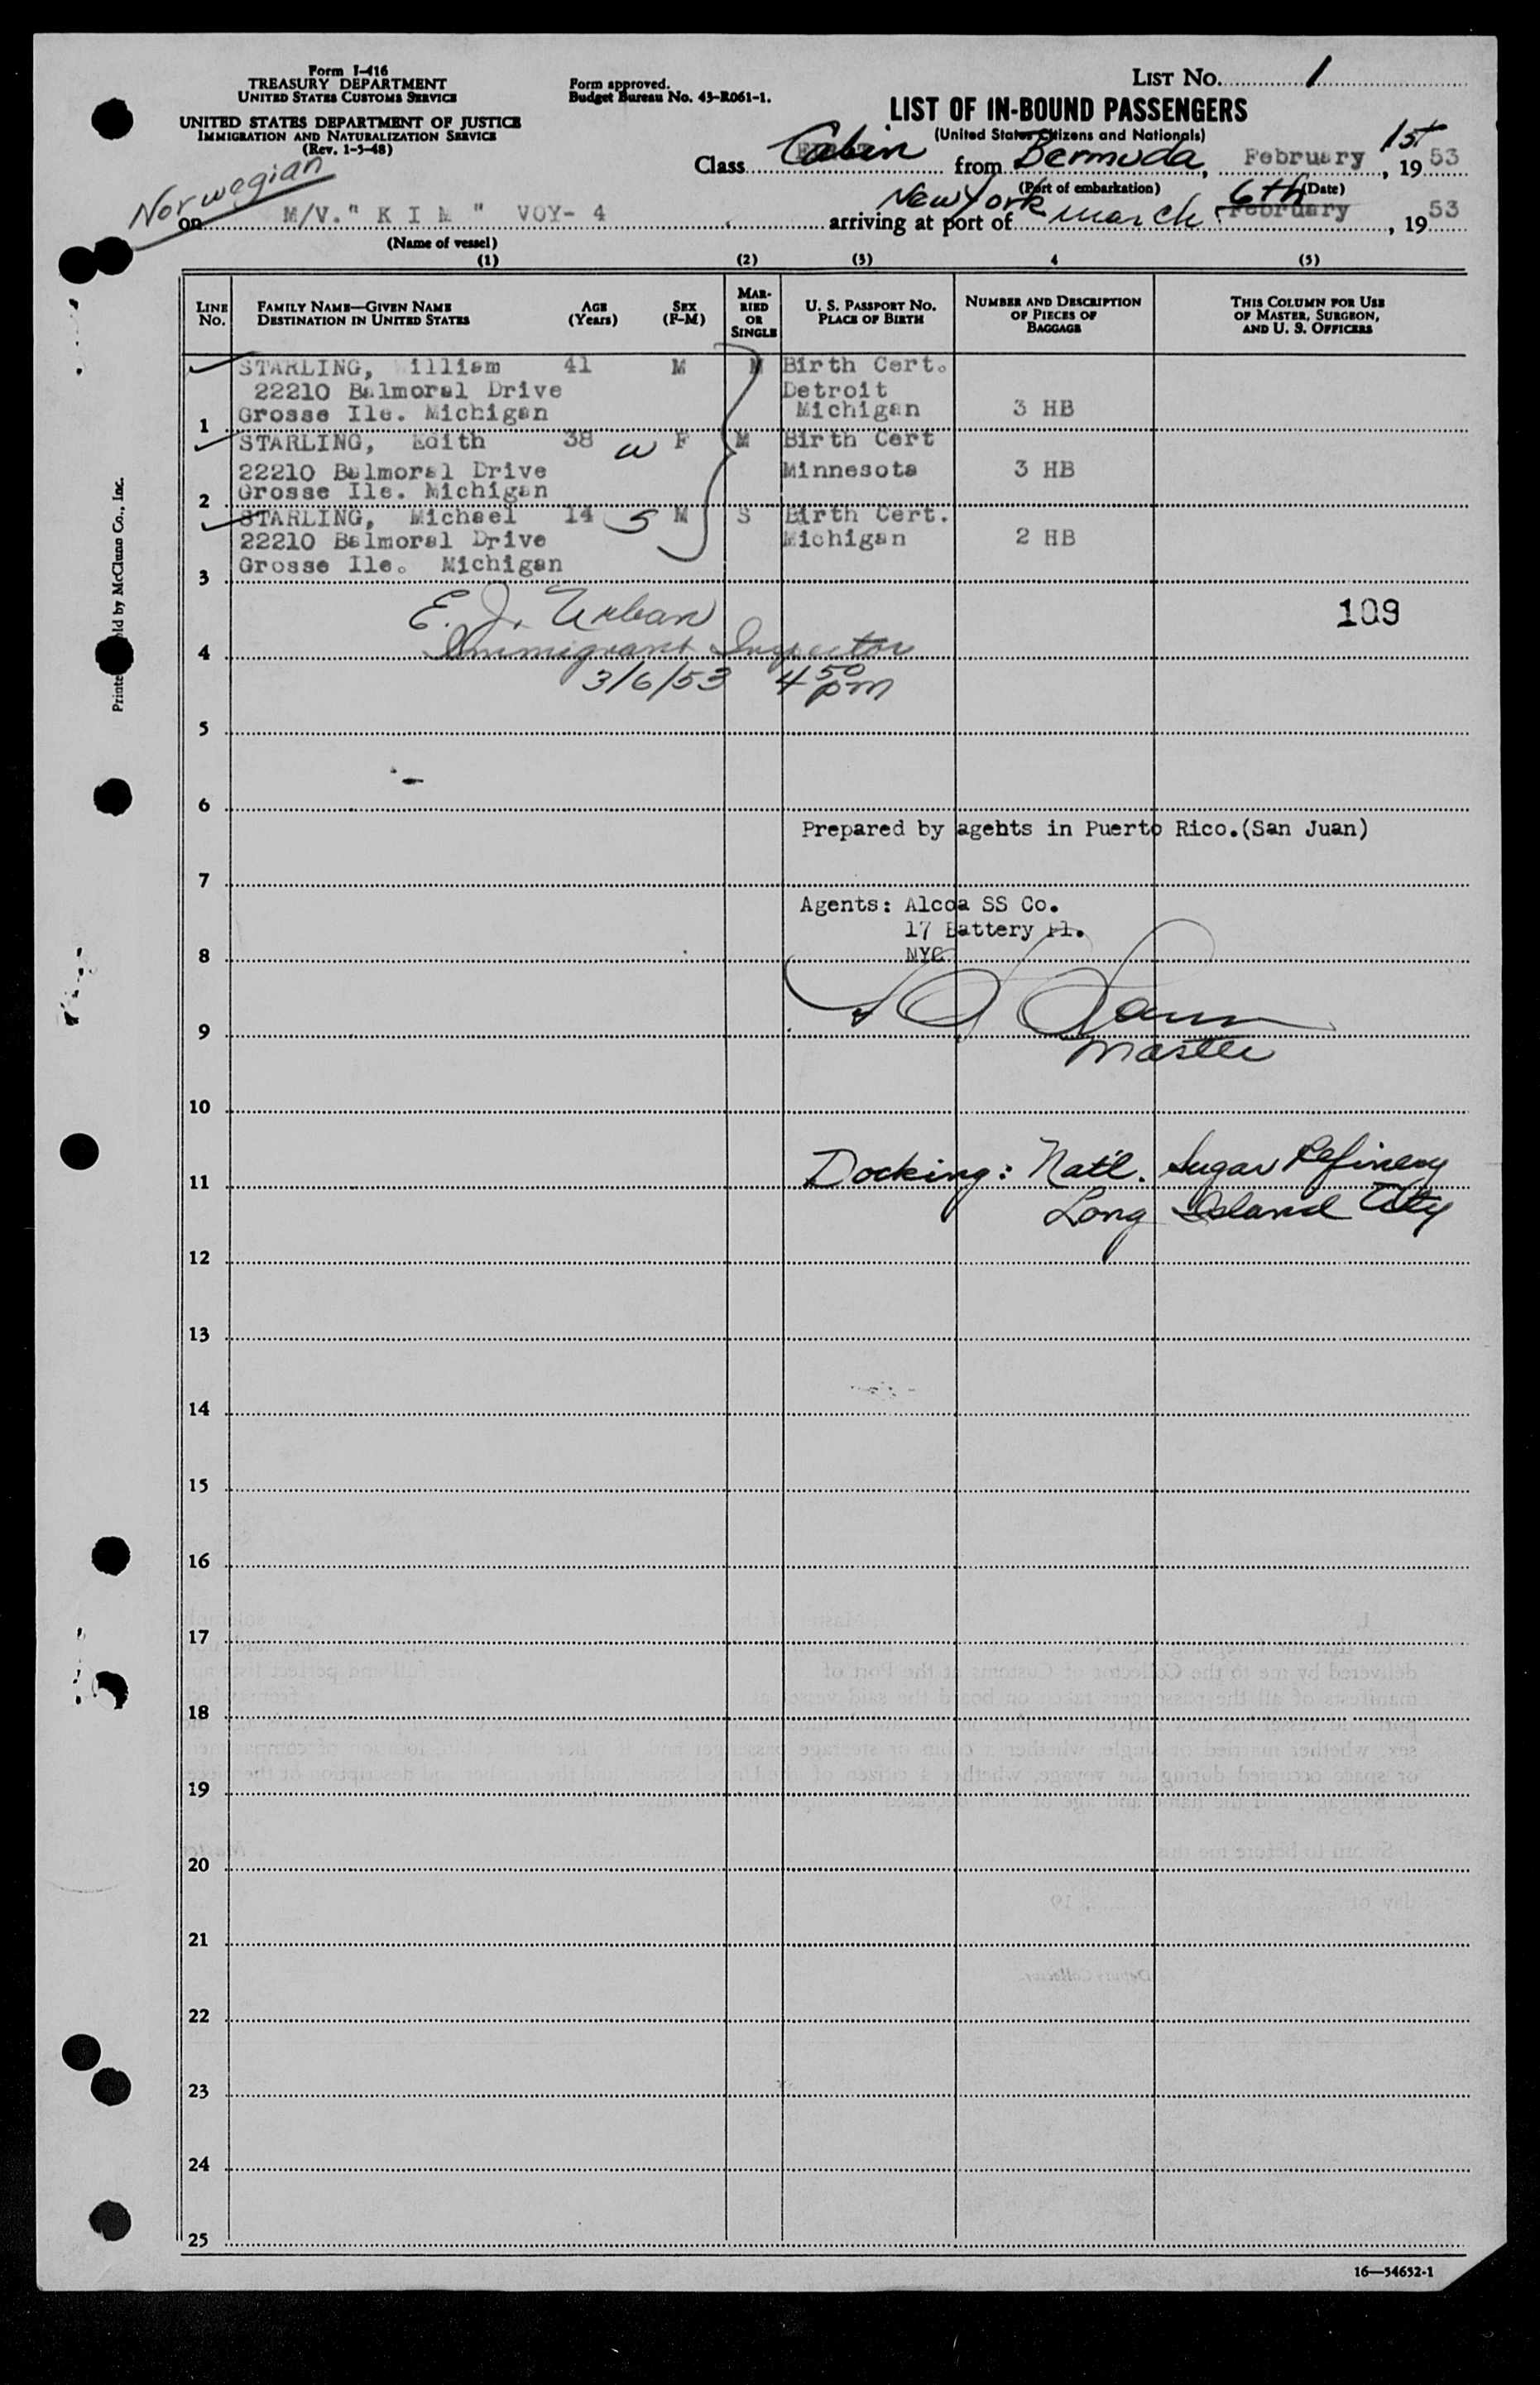 Form I-416
TREASURY DEPARTMENT
UNITED STATES CUSTOMS SERVICE
UNITED STATES DEPARTMENT OF JUSTICE
IMMIGRATION AND NATURALIZATION SERVICE
(Rev. 1-3-48)
Form approved.
Budget Bureau No. 43-R061-1.
LIST No. 1
LIST OF IN-BOUND PASSENGERS
(United States Citizens and Nationals)
Class Cabin from Bermuda, February 1st, 1953
(Port of embarkation) (Date)
Norwegian
on M/V." K I M " VOY- 4 arriving at port of New York march 6th February, 1953
(Name of vessel)
(1) (2) (3) 4 (5)
LINE No. FAMILY NAME—GIVEN NAME DESTINATION IN UNITED STATES AGE (Years) SEX (F-M) MARRIED OR SINGLE U. S. PASSPORT No. PLACE OF BIRTH NUMBER AND DESCRIPTION OF PIECES OF BAGGAGE THIS COLUMN FOR USE OF MASTER, SURGEON, AND U. S. OFFICERS
STARLING, William 41 M M Birth Cert.
22210 Balmoral Drive Detroit
1 Grosse Ile. Michigan Michigan 3 HB
STARLING, Edith 38 W F M Birth Cert
22210 Balmoral Drive Minnesota 3 HB
2 Grosse Ile. Michigan
STARLING, Michael 14 S M S Birth Cert.
22210 Balmoral Drive Michigan 2 HB
3 Grosse Ile. Michigan
E. J. Urban 109
4 Immigrant Inspector
3/6/53 4 50 pm
5
6
Prepared by agehts in Puerto Rico.(San Juan)
7
Agents: Alcoa SS Co.
17 Battery Pl.
8 NYC
9
Master
10
Docking: Nat'l. Sugar Refinery
11
Long Island City
12
13
14
15
16
17
18
19
20
21
22
23
24
25
16—54652-1